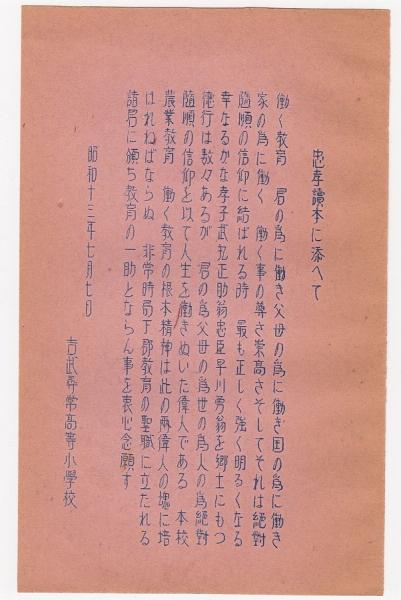 忠孝讀本に添へて
働く教育 君の為に働き父母の為に働き国の為に働き
家の為に働く 働く事の尊さ崇高さそしてそれは絶對
隨順の信仰に結ばれる時 最も正しく強く明るくなる
幸なるかな孝子武丸正助翁忠臣早川勇翁を郷土にもつ
德行は数々あるが 君の為父母の為世の為人の為絶對
隨順の信仰を以て人生を働きぬいた偉人である 本校
農業教育 働く教育の根本精神は此の両偉人の塊に培
はれねばならぬ 非常時局下郡教育の聖職に立たれる
諸君に頒ち教育の一助とならん事を衷心念願す
昭和十三年七月七日
吉武尋常高等小學校